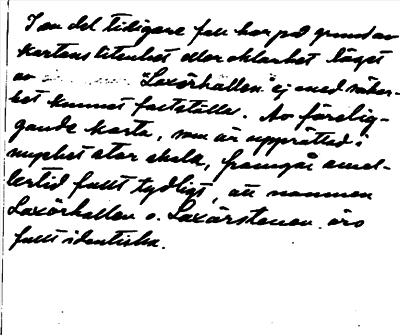 I en del tidigare fall har på grund av
kartans litenhet eller oklarhet läget
av "Laxörhallen" ej med säker-
het kunnat fastställa. Av förelig-
gande karta, som är upprättad i
mycket stor skala, framgår emel-
lertid fullt tydligt, att namnen
Laxörhallen o. Laxörstenen äro
fullt identiska.